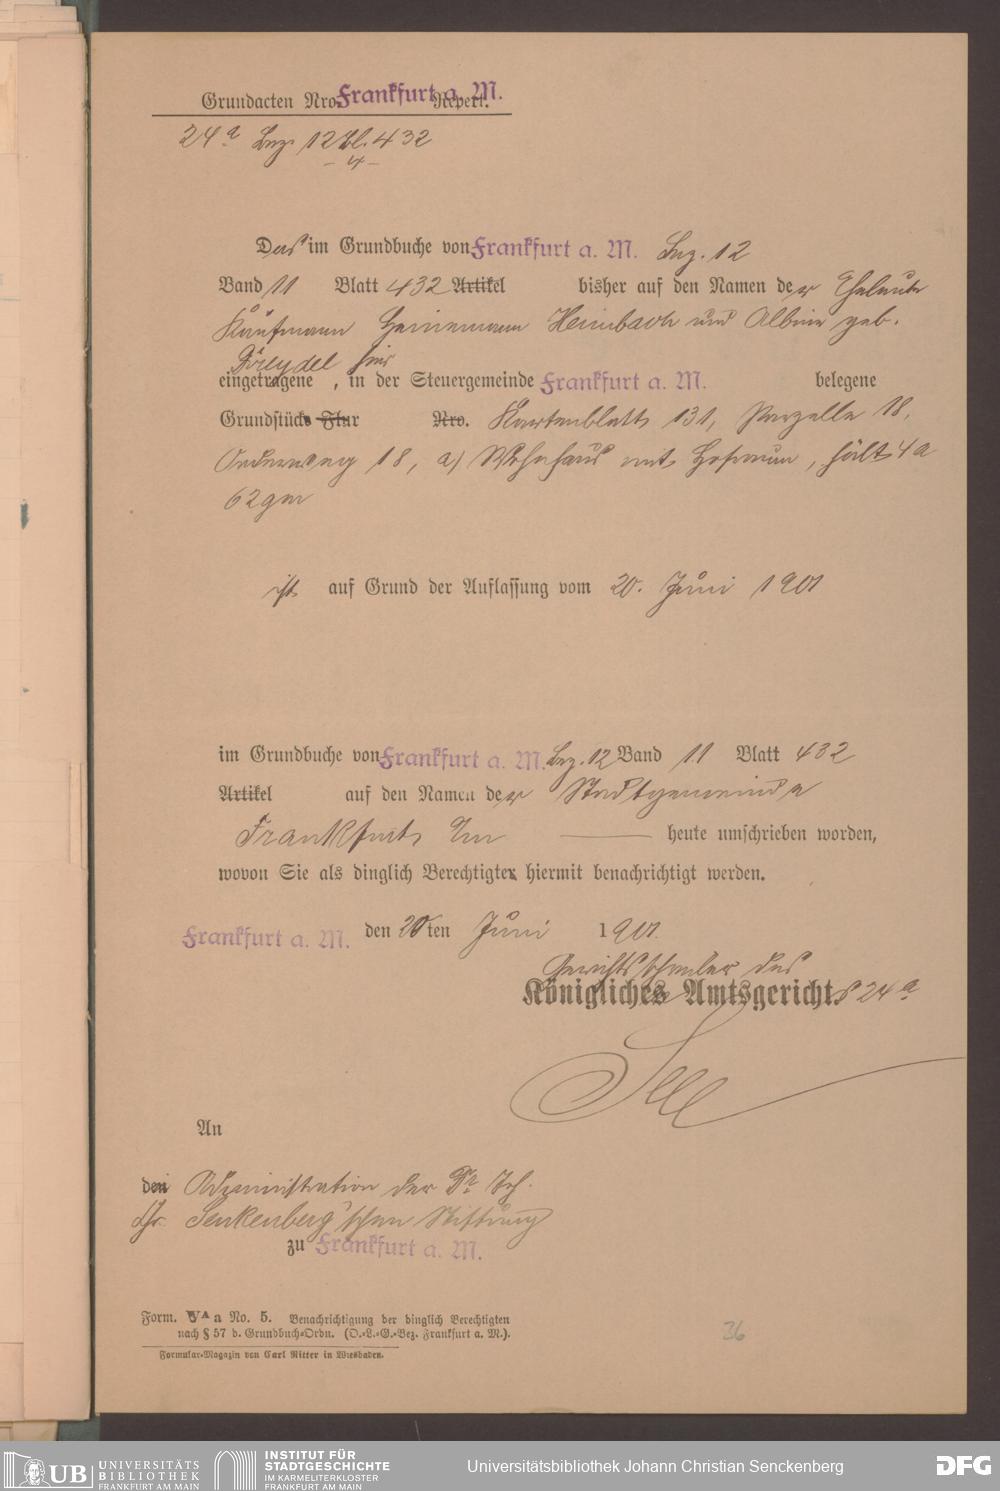 Grundacten Nro. Frankfurt a. M. Repert.
24a Bez. 12 Bl. 432
- 4 -
Das im Grundbuche von Frankfurt a. M. Bez. 12
Band 11 Blatt 432 Artikel bisher auf den Namen der Eheleute
Kaufmann Heinemann Heimbach und Albine geb.
hier
eingetragene, in der Steuergemeinde Frankfurt a. M. belegene
Grundstück Flur Nro. Kartenblatt 131, Parzelle 18,
Oederweg 18, a) Wohnhaus mit Hofraum, hält 4 a
62 qm
ist auf Grund der Auflassung vom 20. Juni 1901
im Grundbuche von Frankfurt a. M. Bez. 12 Band 11 Blatt 432
Artikel auf den Namen der Stadtgemeinde
Frankfurt a/m — heute umschrieben worden,
wovon Sie als dinglich Berechtigte hiermit benachrichtigt werden.
Frankfurt a. M. den 20ten Juni 1901.
Gerichtsschreiber des
Königliches Amtsgericht. 24a
An
den Administration der Dr. Joh.
Chr. Senkenberg'schen Stiftung
zu Frankfurt a. M.
Form. VA a No. 5. Benachrichtigung der dinglich Berechtigten
nach § 57 d. Grundbuch-Ordn. (O.-L.-G.-Bez. Frankfurt a. M.).
Formular-Magazin von Carl Ritter in Wiesbaden.
36
UB UNIVERSITÄTS BIBLIOTHEK FRANKFURT AM MAIN
INSTITUT FÜR STADTGESCHICHTE IM KARMELITERKLOSTER FRANKFURT AM MAIN
Universitätsbibliothek Johann Christian Senckenberg
DFG